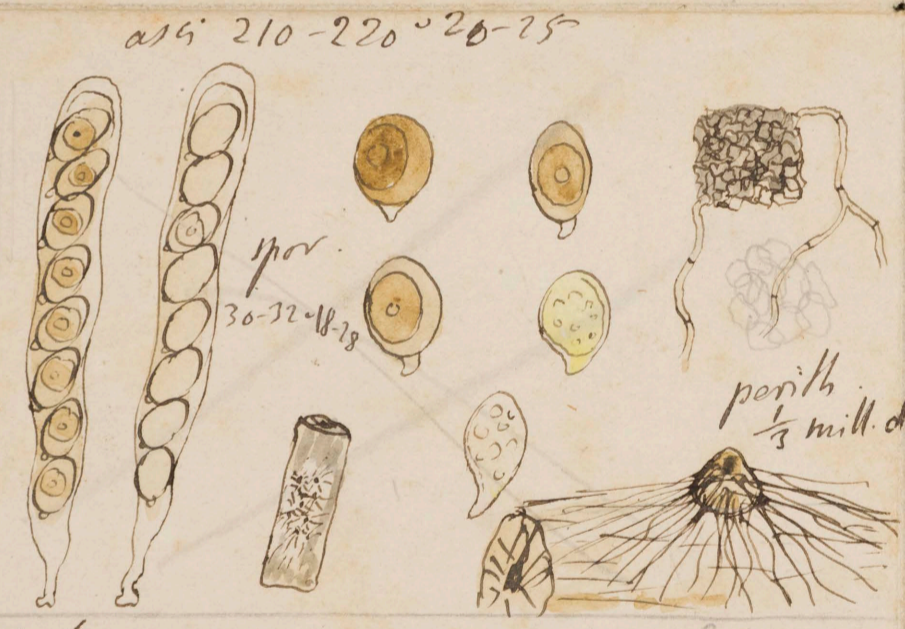 asci 210-220 ᵕ 20-25
spor.
30-32 ᵕ 18-28
perith.
1/3 mill. d